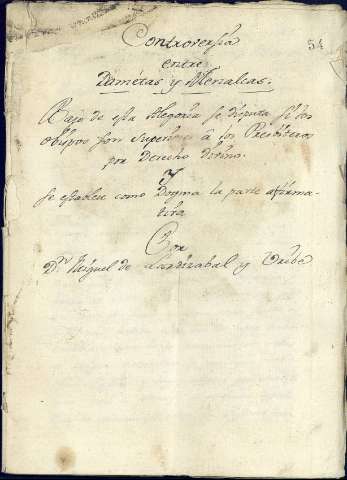 54
Controversia
entre
Dametas y Menalcas.
Bajo de esta Alegoria se disputa si los
Obispos son superiores à los Presbiteros
por derecho divino.
Y
se establece como Dogma la parte afirma-
tiva
Por
Dn. Miguel de Lardizabal y Uribe